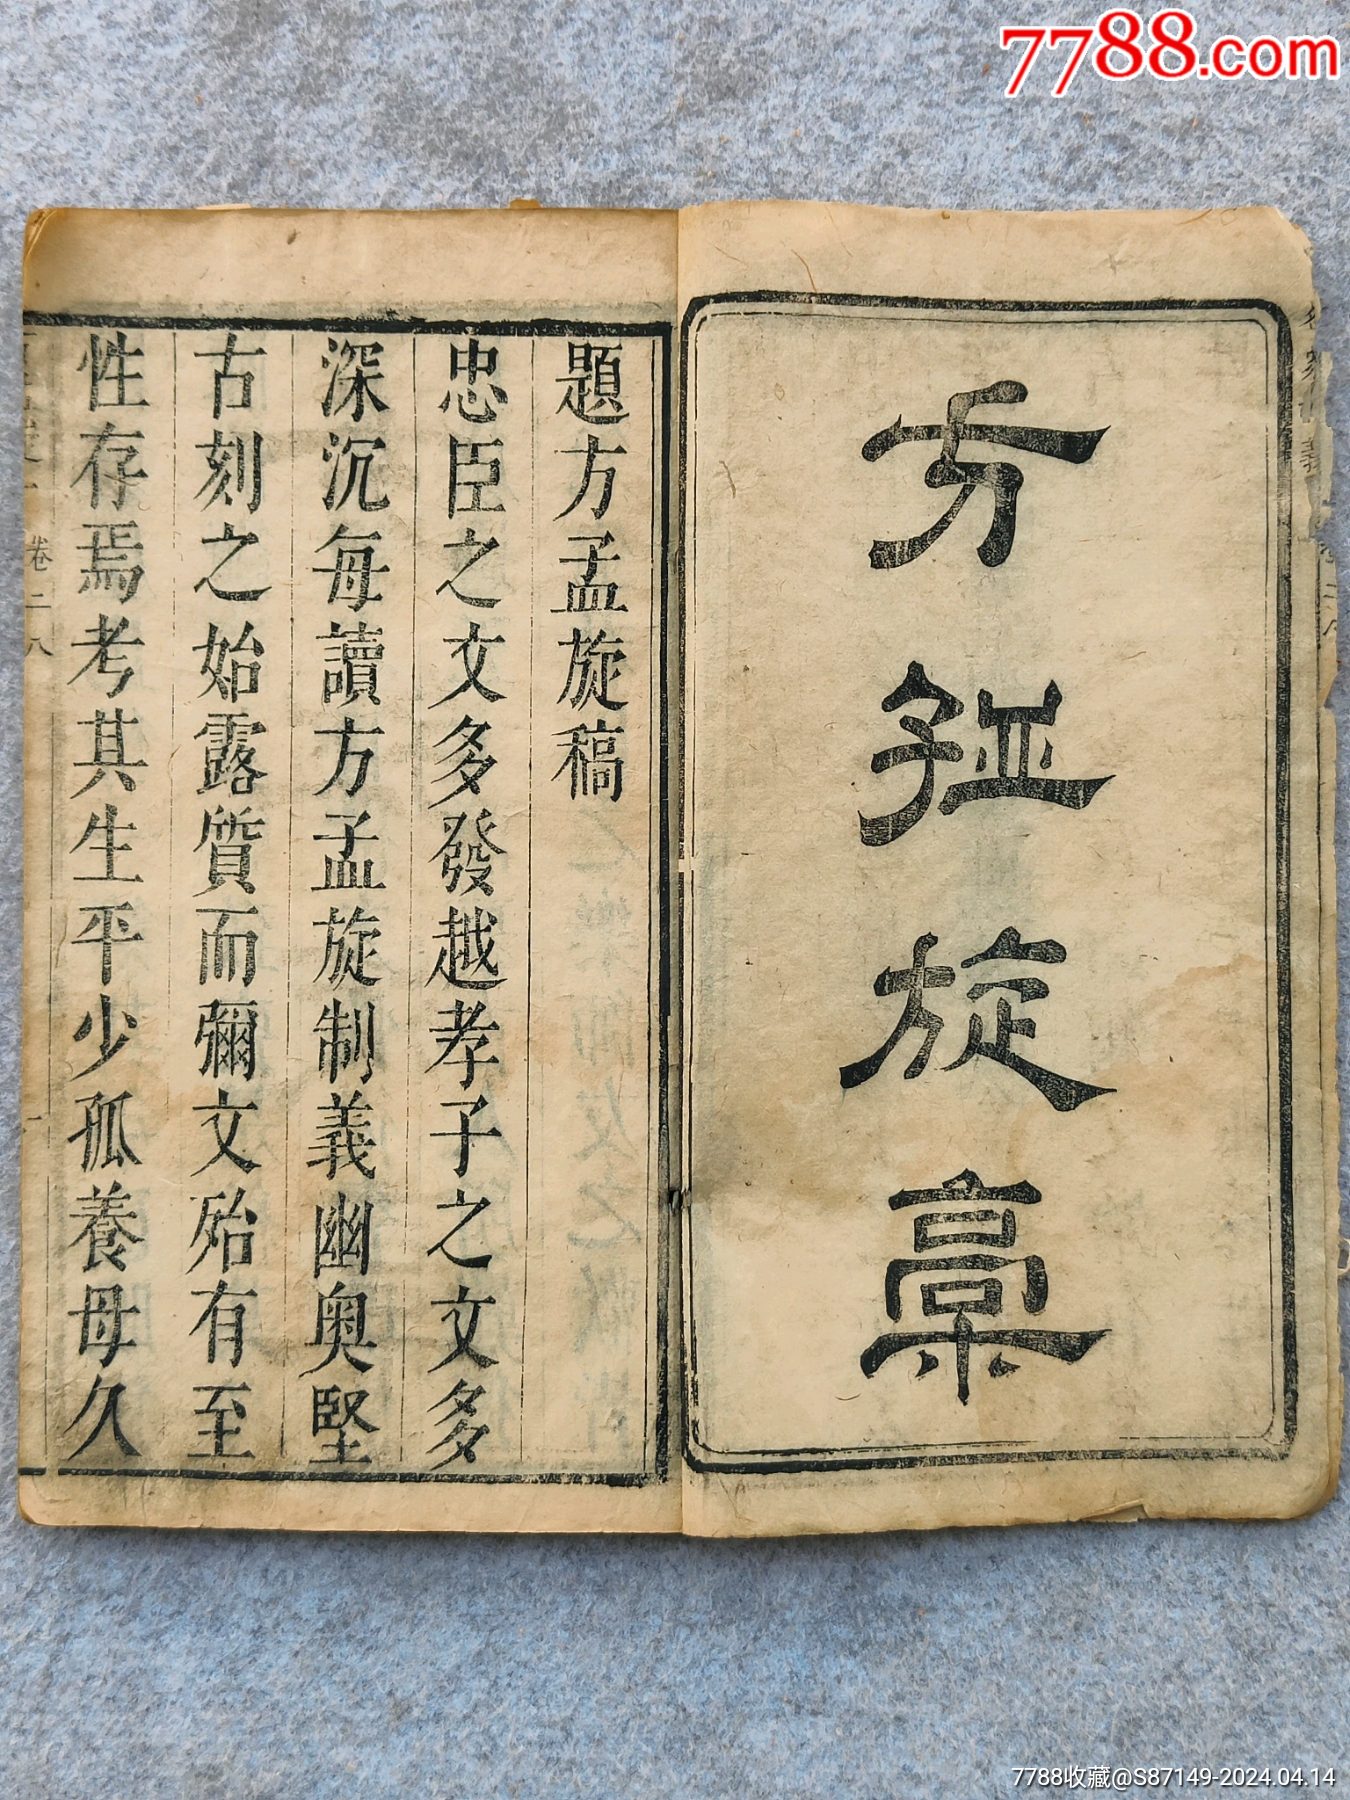 7788.com
方孟旋稾
題方孟旋稿
忠臣之文多發越孝子之文多
深沉每讀方孟旋制義幽奥堅
古刻之始露質而彌文殆有至
性存焉考其生平少孤養母久
卷二八
一
7788收藏@S87149-2024.04.14